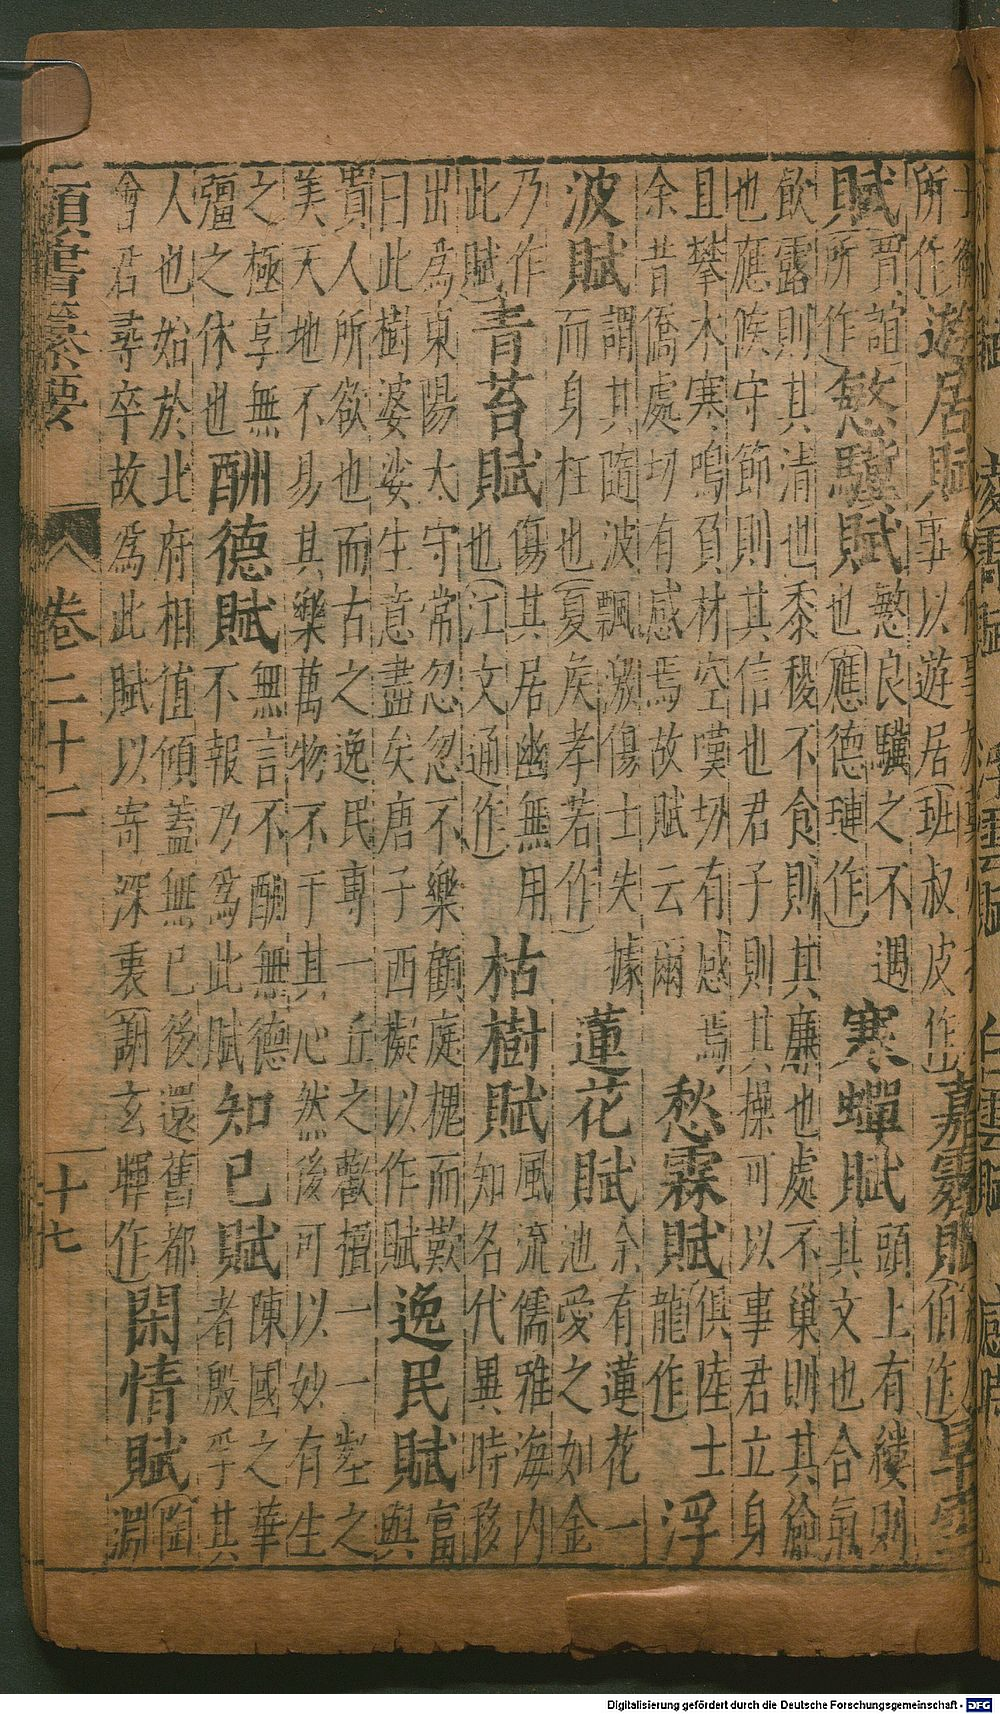 所作遂居賦事以遊居(班叔皮作)嘉霧賦(伯作)旱雲
賦(賈誼所作)慜驥賦慜良驥之不遇也(應德璉作)寒蟬賦頭上有緌則其文也含氣
飲露則其清也黍稷不食則其廉也處不巢則其儉
也應候守節則其信也君子則其操可以事君立身
且攀木寒鳴貧材空嘆切有感焉
余昔僑處切有感焉故賦云爾愁霖賦(俱陸士龍作)浮
波賦謂其隨波飄激傷士失據而身枉也(夏侯孝若作)蓮花賦余有蓮花一池愛之如金
乃作此賦)青苔賦傷其居幽無用也(江文通作)枯樹賦風流儒雅海内知名代異時移
出為東陽太守常忽忽不樂顧庭槐而歎
曰此樹婆娑生意盡矣唐子西擬以作賦逸民賦富與
貴人所欲也而古之逸民專一丘之歡擅一一壑之
美天地不易其樂萬物不干其心然後可以妙有生
之極享無疆之休也酬德賦無言不酬無德不報乃為此賦知已賦陳國之華者殷乎其
人也始於北府相值傾蓋無已後還舊都
會君尋卒故為此賦以寄深衷(謝玄暉作)閑情賦(陶淵
類書纂要 卷二十二 十七
Digitalisierung gefördert durch die Deutsche Forschungsgemeinschaft - DFG